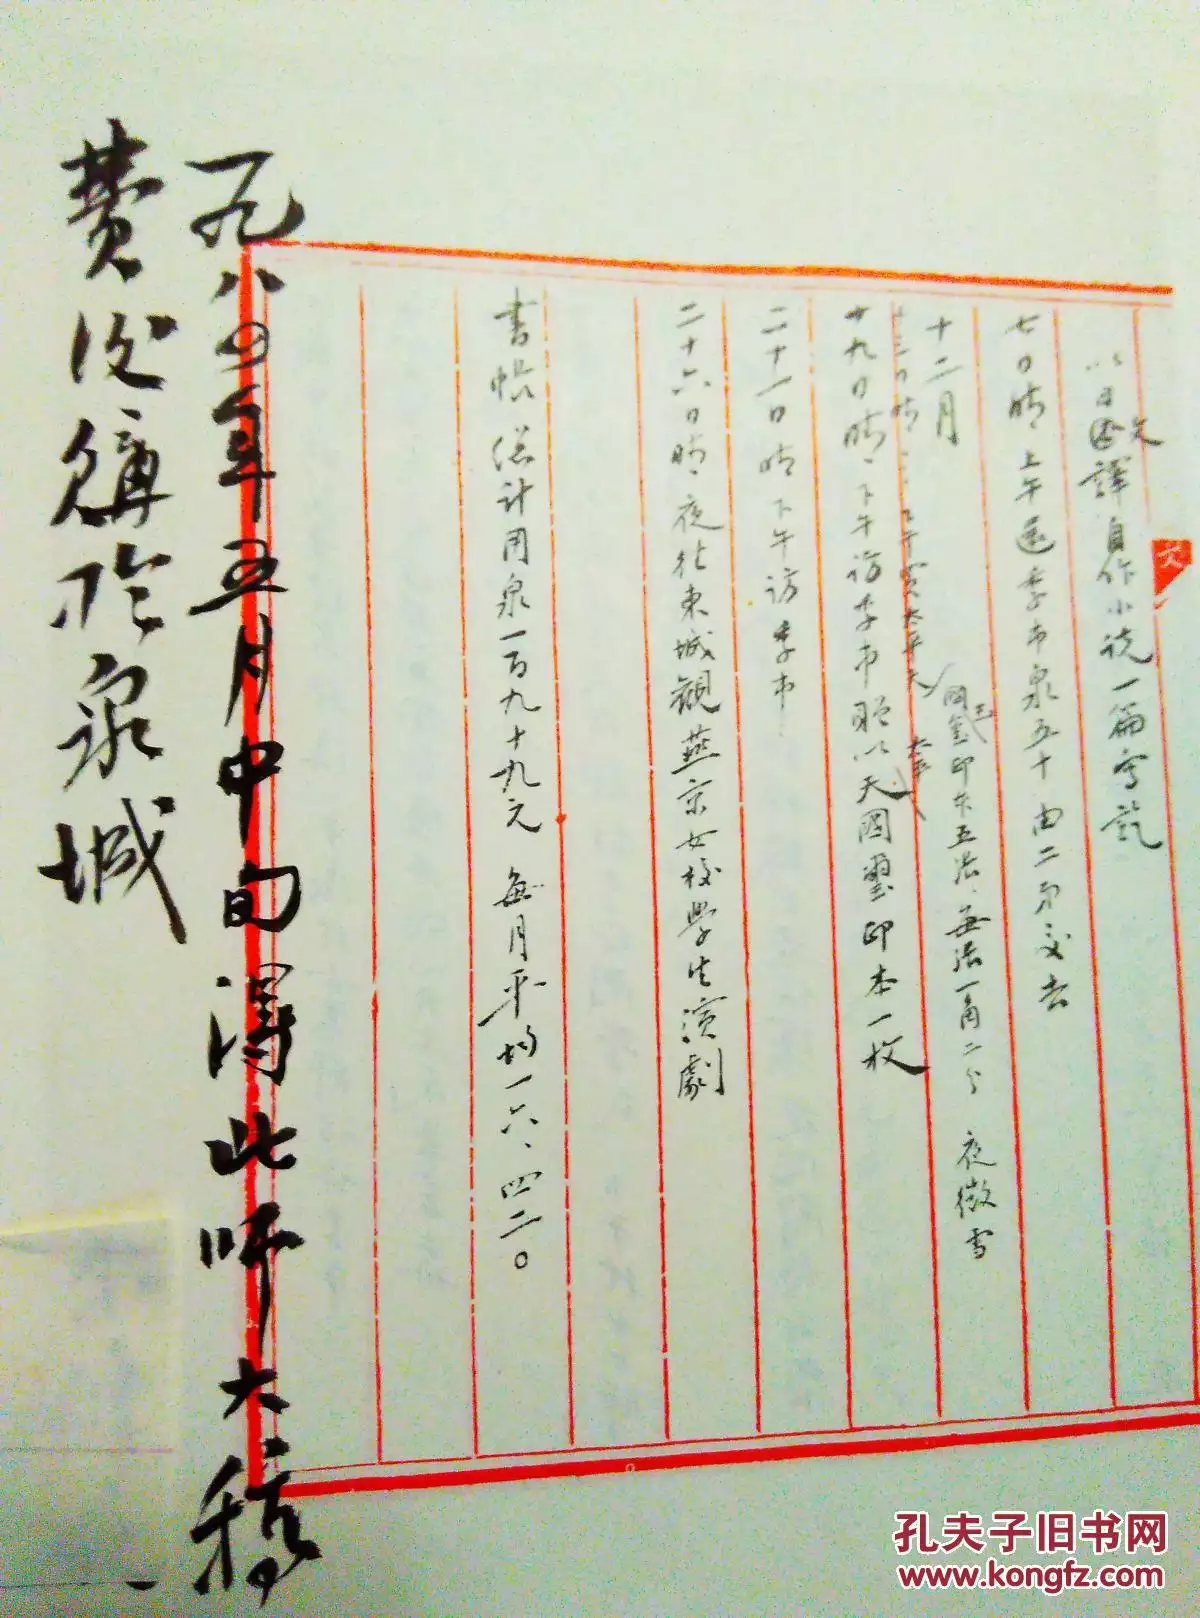 以日文譯自作小说一篇写讫
七日晴上午還季市泉五十由二弟交去
十二月
十三日晴
下午買太平天
國玉璽印本五张每张一角二分 夜微雪
十九日晴下午访季市贈以太平天國璽印本一枚
二十一日晴下午访季市
二十六日晴夜往東城觀燕京女校學生演劇
書帐 总计用泉一百九十九元 每月平均一六·四二〇
一九八四年五月中旬得此师大稿
费後購於泉城
文
孔夫子旧书网
www.kongfz.com